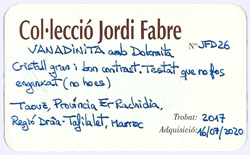 Col·lecció Jordi Fabre
VANADINITA amb Dolomita Nº JFD26
Cristall gran i bon contrast. Testat que no fos
enganxat (no ho es)
Taouz, Província Er-Rachidia,
Regió Drâa-Tafilalet, Marroc
Trobat: 2017
Adquisició: 16/07/2020